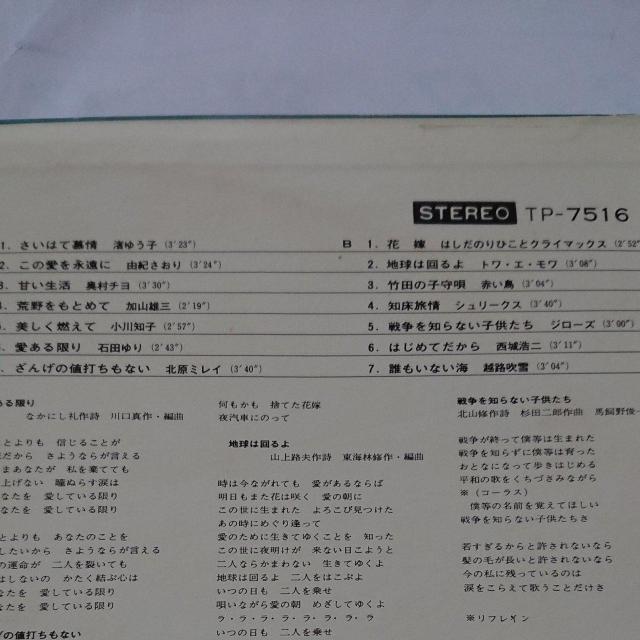 STEREO TP-7516
1. さいはて慕情 濱ゆう子 (3'23")
2. この愛を永遠に 由紀さおり (3'24")
3. 甘い生活 奥村チヨ (3'30")
4. 荒野をもとめて 加山雄三 (2'19")
5. 美しく燃えて 小川知子 (2'57")
6. 愛ある限り 石田ゆり (2'43")
. ざんげの値打ちもない 北原ミレイ (3'40")
B 1. 花嫁 はしだのりひことクライマックス (2'52"
2. 地球は回るよ トワ・エ・モワ (3'08")
3. 竹田の子守唄 赤い鳥 (3'04")
4. 知床旅情 シュリークス (3'40")
5. 戦争を知らない子供たち ジローズ (3'00")
6. はじめてだから 西城浩二 (3'11")
7. 誰もいない海 越路吹雪 (3'04")
ある限り
なかにし礼作詩 川口真作・編曲
とよりも 信じることが
だから さようならが言える
まあなたが 私を棄てても
上げない 瞳ぬらす涙は
なたを 愛している限り
なたを 愛している限り
とよりも あなたのことを
したいから さようならが言える
の運命が 二人を裂いても
はしないの かたく結ぶ心は
なたを 愛している限り
なたを 愛している限り
げの値打ちもない
何もかも 捨てた花嫁
夜汽車にのって
地球は回るよ
山上路夫作詩 東海林修作・編曲
時は今ながれても 愛があるならば
明日もまた花は咲く 愛の朝に
この世に生まれた よろこび見つけた
あの時めぐり逢って
愛のために生きてゆくことを 知った
この世に夜明けが 来ない日こようと
二人ならかまわない 生きてゆくよ
地球は回るよ 二人をはこぶよ
いつの日も 二人を乗せ
唄いながら愛の朝 めざしてゆくよ
ラ・ラ・ラ・ラ・ラ・ラ・ラ
いつの日も 二人を乗せ
戦争を知らない子供たち
北山修作詩 杉田二郎作曲 馬飼野俊一
戦争が終って僕等は生まれた
戦争を知らずに僕等は育った
おとなになって歩きはじめる
平和の歌をくちづさみながら
※(コーラス)
僕等の名前を覚えてほしい
戦争を知らない子供たちさ
若すぎるからと許されないなら
髪の毛が長いと許されないなら
今の私に残っているのは
涙をこらえて歌うことだけさ
※リフレイン